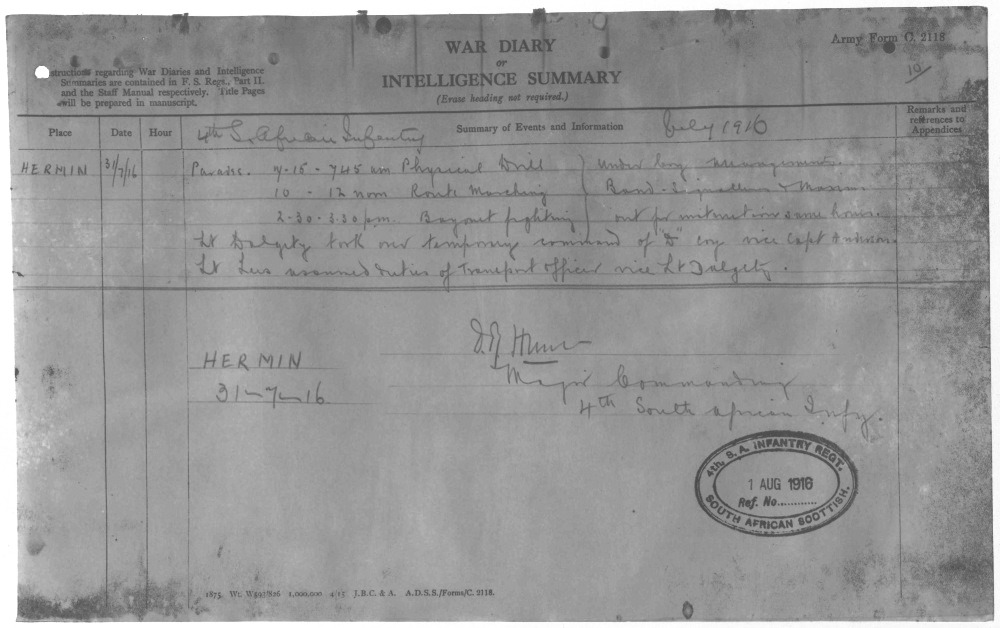 WAR DIARY
or
INTELLIGENCE SUMMARY
(Erase heading not required.)
Army Form C. 2118
10
structions regarding War Diaries and Intelligence
Summaries are contained in F. S. Regs., Part II.
and the Staff Manual respectively. Title Pages
will be prepared in manuscript.
Place Date Hour Summary of Events and Information Remarks and references to Appendices
4th S. African Infantry July 1916
HERMIN 31/7/16 Parade. 7-15 - 7.45 am Physical Drill under Coy arrangements.
10 - 12 noon Route Marching Band - Signallers & Maxim
2-30 - 3.30 pm. Bayonet fighting out for instruction same hours.
Lt Dalgety took over temporary command of "D" coy vice Capt Anderson.
Lt Lees assumed duties of Transport Officer vice Lt Dalgety.
HERMIN
31-7-16
Major Commanding
4th South African Infy.
4th. S. A. INFANTRY REGT.
1 AUG 1916
Ref. No............
SOUTH AFRICAN SCOTTISH.
1875 Wt. W593/826 1,000,000 4/15 J.B.C. & A. A.D.S.S./Forms/C. 2118.